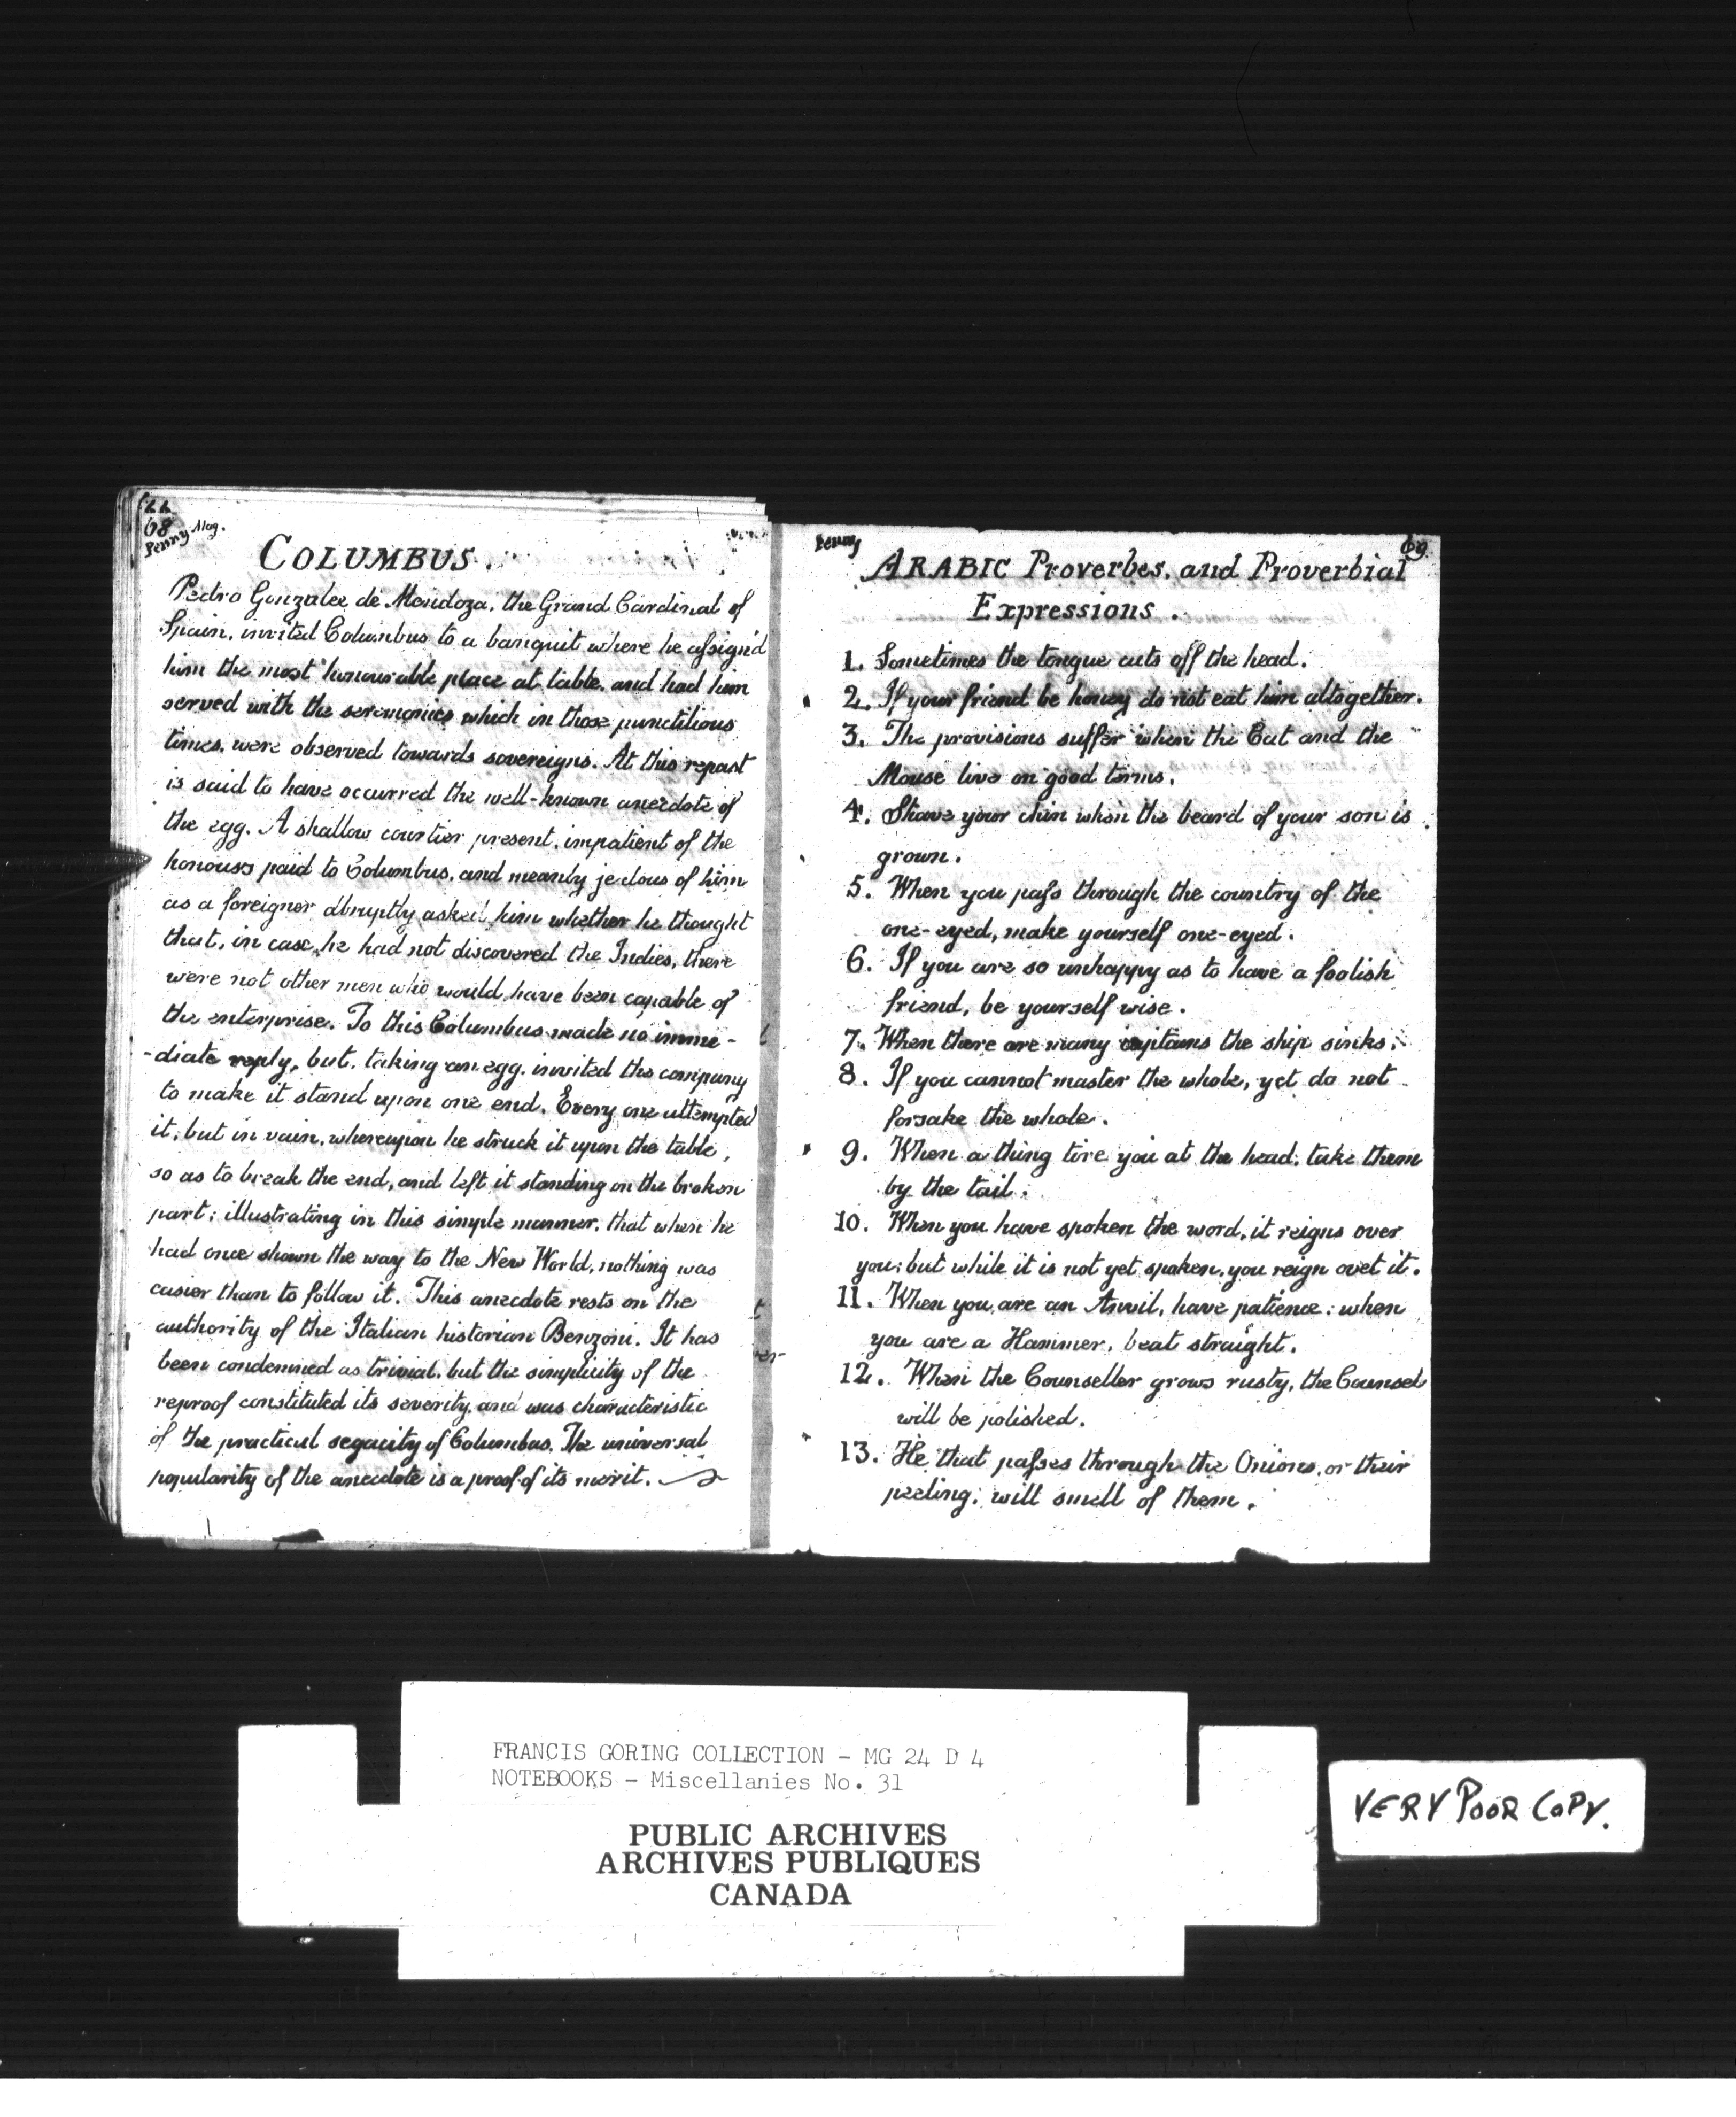 68
Penny Mag.
COLUMBUS.
Pedro Gonzalee de Mendoza, the Grand Cardinal of
Spain, invited Columbus to a banquit where he assign'd
him the most honourable place at table, and had him
served with the seremonies which in those punctilious
times, were observed towards sovereigns. At this repast
is said to have occurred the well-known anecdote of
the egg. A shallow courtier present, impatient of the
honours paid to Columbus, and meanly jealous of him
as a foreigner abruptly asked him whether he thought
that, in case he had not discovered the Indies, there
were not other men who would have been capable of
the enterprise. To this Columbus made no imme-
-diate reply, but, taking an egg, invited the company
to make it stand upon one end. Every one attempted
it, but in vain, whereupon he struck it upon the table,
so as to break the end, and left it standing on the broken
part; illustrating in this simple manner, that when he
had once shown the way to the New World, nothing was
easier than to follow it. This anecdote rests on the
authority of the Italian historian Benzoni. It has
been condemned as trivial, but the simplicity of the
reproof constituted its severity, and was characteristic
of the practical segacity of Columbus. The universal
popularity of the anecdote is a proof of its merit.
Penny
69
ARABIC Proverbes, and Proverbial
Expressions.
1. Sometimes the tongue cuts off the head.
2. If your friend be honey do not eat him altogether.
3. The provisions suffer when the Cat and the
Mouse live on good terms.
4. Shave your chin when the beard of your son is
grown.
5. When you pass through the country of the
one-eyed, make yourself one-eyed.
6. If you are so unhappy as to have a foolish
friend, be yourself wise.
7. When there are many captains the ship sinks.
8. If you cannot master the whole, yet do not
forsake the whole.
9. When a thing tire you at the head, take them
by the tail.
10. When you have spoken the word, it reigns over
you; but while it is not yet spoken, you reign ovet it.
11. When you are an Anvil, have patience; when
you are a Hammer, beat straight.
12. When the Counseller grows rusty, the Counsel
will be polished.
13. He that passes through the Onions, or their
peeling, will smell of them.
FRANCIS GORING COLLECTION - MG 24 D 4
NOTEBOOKS - Miscellanies No. 31
PUBLIC ARCHIVES
ARCHIVES PUBLIQUES
CANADA
VERY POOR COPY.